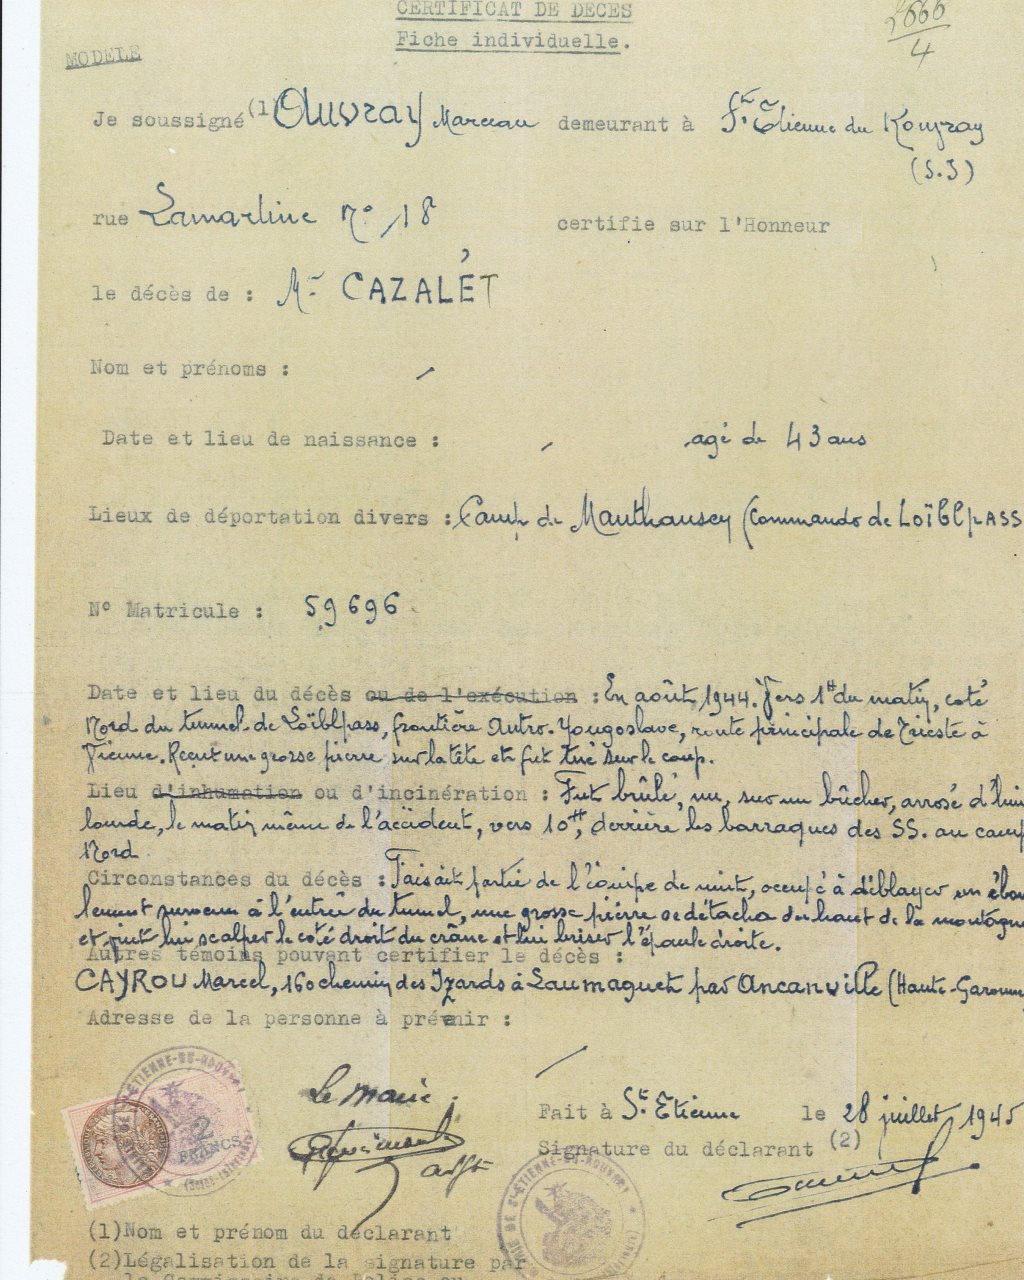 CERTIFICAT DE DECES
Fiche individuelle.
MODELE
4
Je soussigné (1) Auvray Marceau demeurant à St. Etienne du Rouvray
(S.I)
rue Lamartine No 18 certifie sur l'Honneur
le décès de : Mr CAZALÉT
Nom et prénoms :
Date et lieu de naissance : agé de 43 ans
Lieux de déportation divers : Camp de Mauthausen (Commando de LOÏBLPASS
N° Matricule : 59696
Date et lieu du décès ou de l'exécution : En août 1944. Vers 1H du matin, coté
Nord du tunnel de Loïblpass, frontière Autro-Yougoslave, route principale de Trieste à
Vienne. Reçut une grosse pierre sur la tête et fut tué sur le coup.
Lieu d'inhumation ou d'incinération : Fut brûlé, nu, sur un bûcher, arrosé d'hui
lourde, le matin même de l'accident, vers 10H, derrière les barraques des SS. au camp
Nord
Circonstances du décès : Faisait partie de l'équipe de nuit, occupé à déblayer un ébou
lement survenu à l'entrée du tunnel, une grosse pierre se détacha du haut de la montagne
et vint lui scalper le coté droit du crâne et lui briser l'épaule droite.
Autres témoins pouvant certifier le décès :
CAYROU Marcel, 160 chemin des Izards à Laumaguet par Ancanville (Haute-Garonne
Adresse de la personne à prévenir :
Le Maire
adjt
Fait à St. Etienne le 28 juillet 1945
Signature du déclarant (2)
2
FRANCS
(1)Nom et prénom du déclarant
(2)Légalisation de la signature par